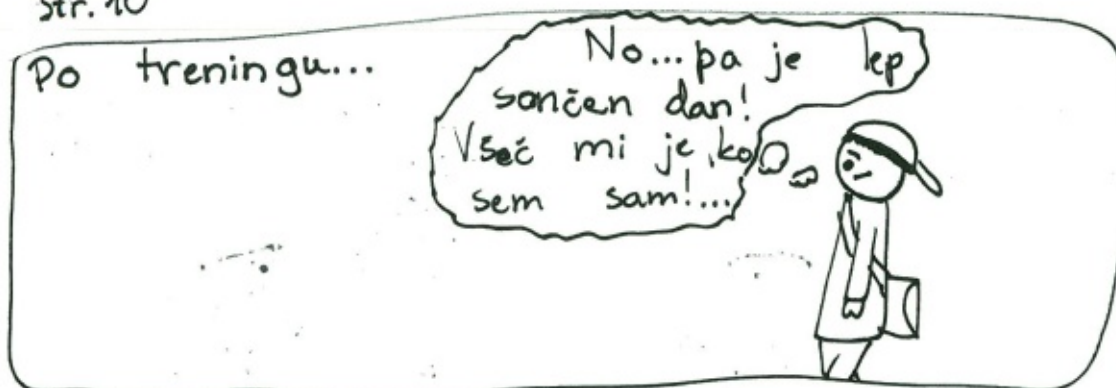 str. 10
Po treningu...
No... pa je lep
sončen dan!
Všeč mi je, ko
sem sam!...